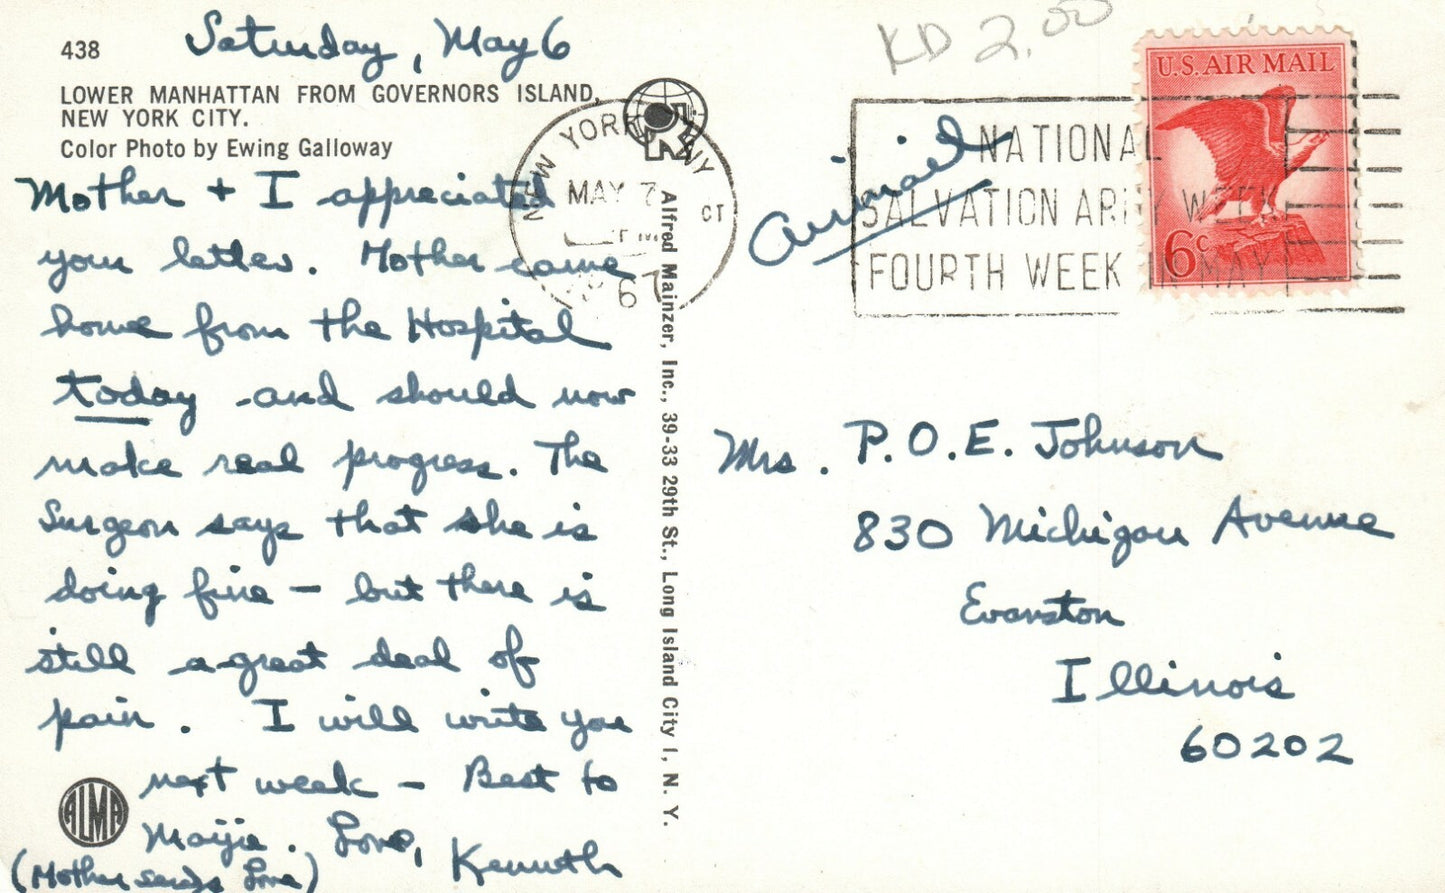 438
Saturday, May 6
LOWER MANHATTAN FROM GOVERNORS ISLAND,
NEW YORK CITY.
Color Photo by Ewing Galloway
Mother + I appreciated
your letter. Mother came
home from the Hospital
today and should now
make real progress. The
Surgeon says that she is
doing fine — but there is
still a great deal of
pain. I will write you
next week — Best to
Maijie. Love, Kenneth
(Mother sends Love)
ALMA
Alfred Mainzer, Inc., 39-33 29th St., Long Island City 1, N. Y.
KD 2.00
NEW YORK NY
MAY 7
PM
67
Airmail
NATIONAL
SALVATION ARMY WEEK
FOURTH WEEK IN MAY
U.S. AIR MAIL
6c
Mrs. P.O.E. Johnson
830 Michigan Avenue
Evanston
Illinois
60202